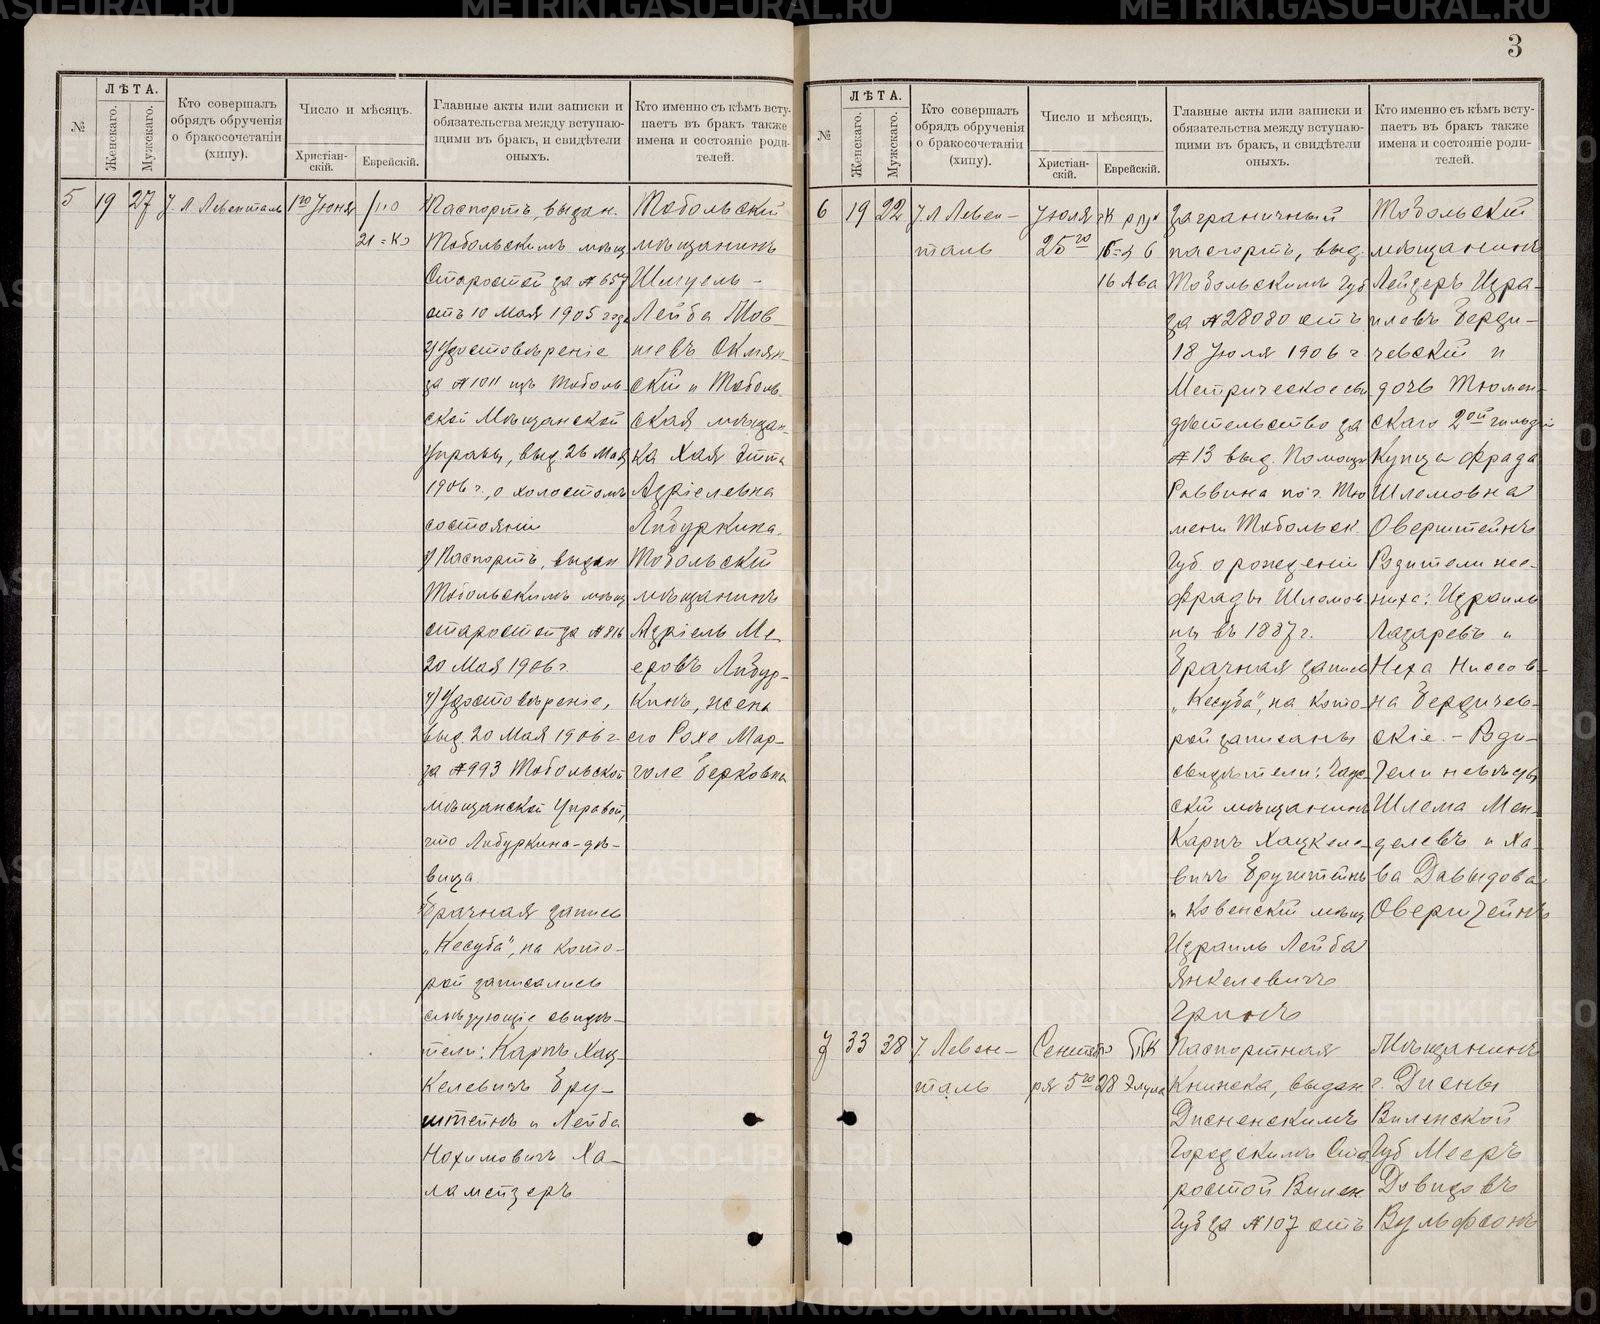 3
№
ЛѢТА.
Женскаго.
Мужскаго.
Кто совершалъ
обрядъ обрученія
о бракосочетаніи
(хипу).
Число и мѣсяцъ.
Христіан-
скій.
Еврейскій.
Главные акты или записки и
обязательства между вступаю-
щими въ бракъ, и свидѣтели
оныхъ.
Кто именно съ кѣмъ всту-
паетъ въ бракъ также
имена и состояніе роди-
телей.
5
19
27
Левенталь
1го Іюня
21
Паспортъ, выдан.
Тобольскимъ мѣщ
Старостой за № 657
отъ 10 Мая 1905 года
2) Удостовѣреніе
за № 1011 изъ Тоболь-
ской Мѣщанской
Управы, выд. 26 Мая
1906 г., о холостомъ
состояніи
3) Паспортъ, выдан
Тобольскимъ мѣщ
старостой за № 816
20 Мая 1906 г.
4) Удостовѣреніе,
выд. 20 Мая 1906 г.
за № 993 Тобольской
мѣщанской Управой,
что Либуркина-дѣ-
вица
Брачная запись
„Кесуба“, на кото-
рой записались
слѣдующіе свидѣ-
тели: Карпъ Хац-
келевичъ Бру-
штейнъ и Лейба
Нохимовичъ Ха-
ламейзеръ
Тобольскій
мѣщанинъ
Шмуель-
Лейба Мов-
шевъ Окмян-
скій и Тоболь-
ская мѣщан-
ка Хая Этта
Адріелевна
Либуркина.
Тобольскій
мѣщанинъ
Адріель Ме-
еровъ Либур-
кинъ, жена
его Рохе Мар-
голе Берковна
№
ЛѢТА.
Женскаго.
Мужскаго.
Кто совершалъ
обрядъ обрученія
о бракосочетаніи
(хипу).
Число и мѣсяцъ.
Христіан-
скій.
Еврейскій.
Главные акты или записки и
обязательства между вступаю-
щими въ бракъ, и свидѣтели
оныхъ.
Кто именно съ кѣмъ всту-
паетъ въ бракъ также
имена и состояніе роди-
телей.
6
19
22
Левен-
таль
Іюля
25го
16 Ава
Заграничный
паспортъ, выд.
Тобольскимъ Губ
за № 28080 отъ
18 Іюля 1906 г
Метрическое сви
дѣтельство за
№ 13 выд. Помощн
Раввина по г. Тю
мени Тобольск.
Губ. о рожденіи
Фрады Шлемов-
ны въ 1887 г.
Брачная запись
„Кесуба“, на кото-
рой записаны
свидѣтели:
скій мѣщанинъ
Карпъ Хацкеле-
вичъ Бруштейнъ
и Ковенскій мѣщ
Израиль Лейба
Янкелевичъ
Гринъ
Тобольскій
мѣщанинъ
Лейзеръ Изра-
илевъ Берди-
чевскій и
дочь Тюмен-
скаго 2ой гильдіи
Купца Фрада
Шлемовна
Оверштейнъ
Родители же-
ниха: Израиль
Лазаревъ и
Неха Ниссов-
на Бердичев-
скіе. - Роди-
тели невѣсты
Шлема Мен-
делевъ и Ха-
ва Давыдова
Оверштейнъ
7
33
38
Левен-
таль
Сентяб
ря 5го
28 Элула
Паспортная
Книжка, выдан
Дисненскимъ
Городскимъ Ста
ростой Вилен.
Губ за № 107 отъ
Мѣщанинъ
г. Дисны
Виленской
Губ Мееръ
Довидовъ
Вульфсонъ
METRIKI.GASO-URAL.RU